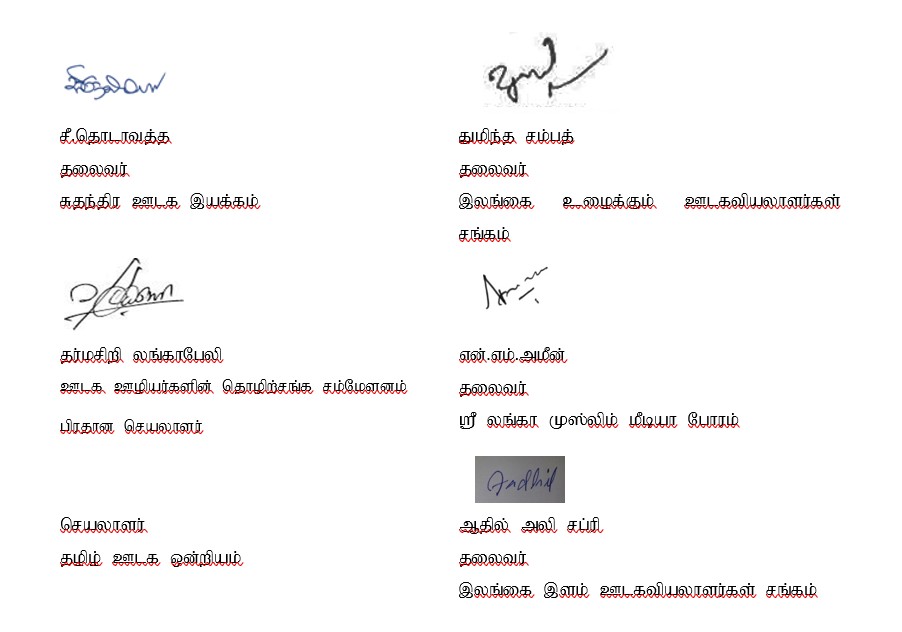 சீ.தொடாவத்த
தலைவர்
சுதந்திர ஊடக இயக்கம்
துமிந்த சம்பத்
தலைவர்
இலங்கை உழைக்கும் ஊடகவியலாளர்கள்
சங்கம்
தர்மசிறி லங்காபேலி
ஊடக ஊழியர்களின் தொழிற்சங்க சம்மேளனம்
பிரதான செயலாளர்
என்.எம்.அமீன்
தலைவர்
ஸ்ரீ லங்கா முஸ்லிம் மீடியா போரம்
செயலாளர்
தமிழ் ஊடக ஒன்றியம்
Aadhil
ஆதில் அலி சப்ரி
தலைவர்
இலங்கை இளம் ஊடகவியலாளர்கள் சங்கம்